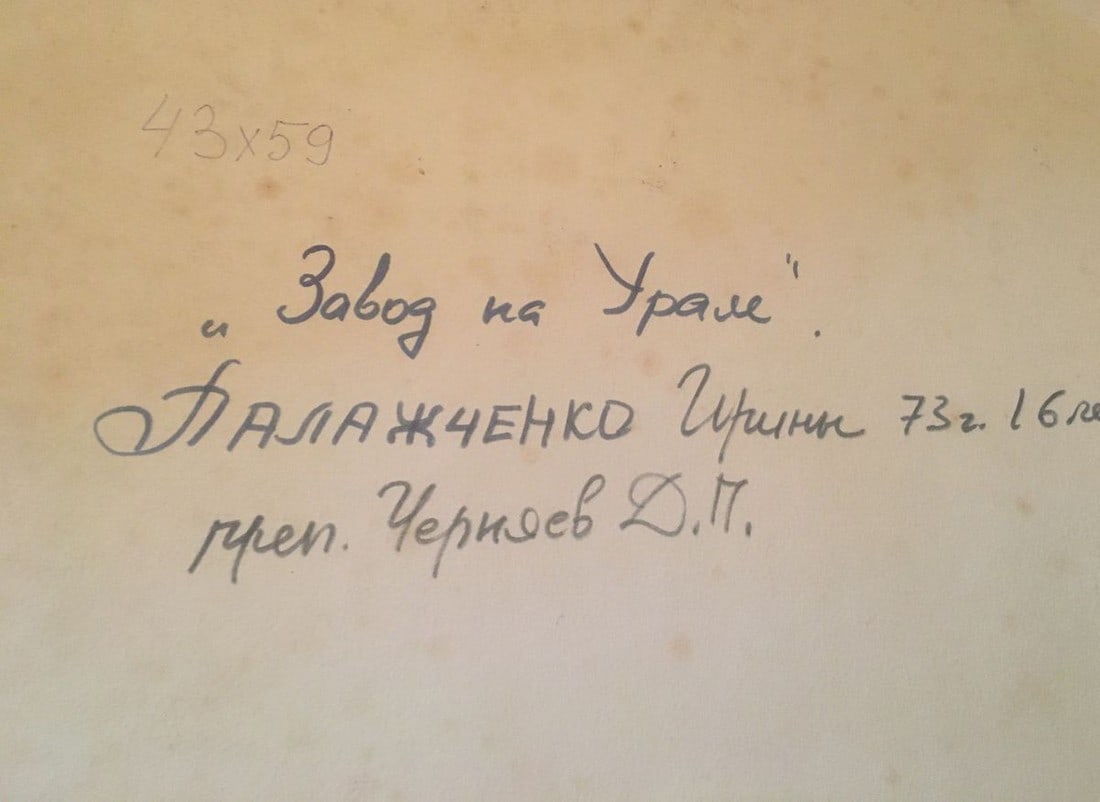 43х59
„Завод на Урале".
ПАЛАЖЧЕНКО Ирины 73г. 16 ле
преп. Черняев Д.П.